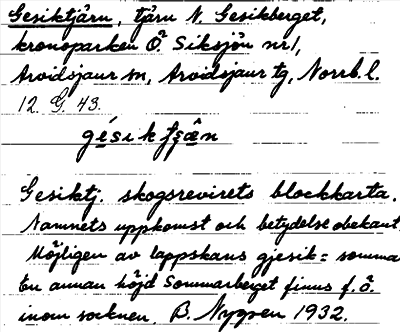 Gesiktjärn, tjärn N. Gesikberget,
kronoparken Ö. Siksjön nr 1,
Arvidsjaur sn, Arvidsjaur tg, Norrb. l.
12. G. 43.
Gesiktj. skogsrevirets blockkarta.
Namnets uppkomst och betydelse obekant.
Möjligen av lappskans gjesik = sommar
En annan höjd Sommarberget finns f. ö.
inom socknen. B. Nyggen 1932.